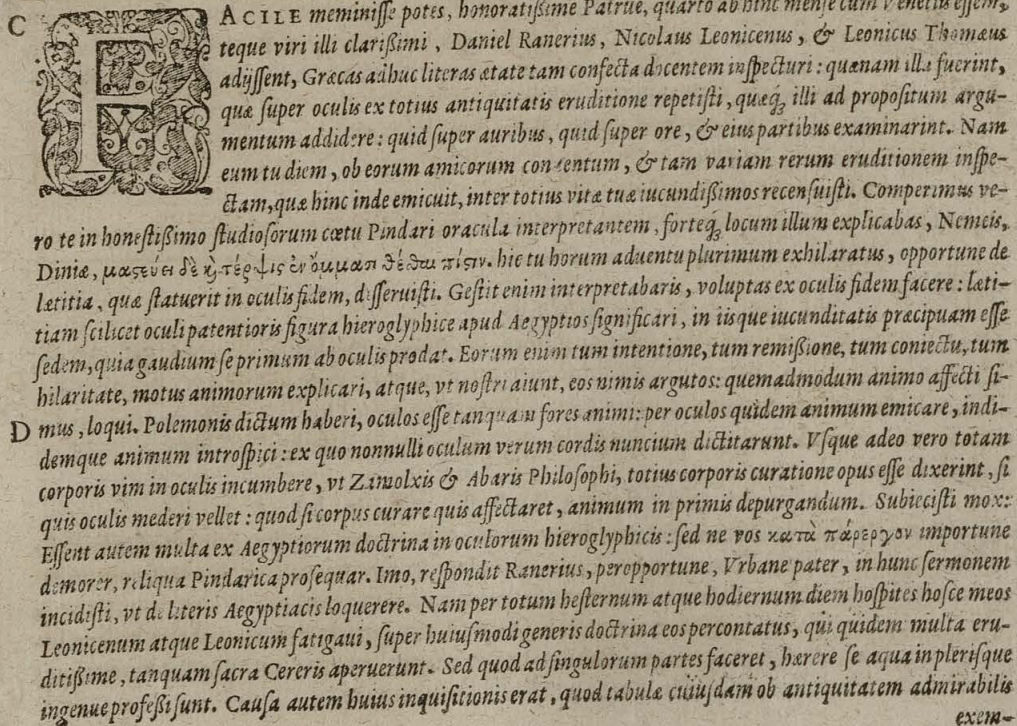 C
FACILE meminiſſe potes, honoratißime Patrue, quarto ab hinc menſe cum Venetiis eſſem,
teque viri illi clarißimi, Daniel Ranerius, Nicolaus Leonicenus, & Leonicus Thomæus
adijſſent, Græcas adhuc literas ætate tam confecta docentem inſpecturi: quænam illa fuerint,
quæ ſuper oculis ex totius antiquitatis eruditione repetiſti, quæq́; illi ad propoſitum argu-
mentum addidere: quid ſuper auribus, quid ſuper ore, & eius partibus examinarint. Nam
eum tu diem, ob eorum amicorum conuentum, & tam variam rerum eruditionem inſpe-
ctam, quæ hinc inde emicuit, inter totius vitæ tuæ iucundißimos recenſuiſti. Comperimus ve-
ro te in honeſtißimo ſtudioſorum cœtu Pindari oracula interpretantem, forteq́; locum illum explicabas, Nemeis,
Diniæ, μαστεύει δὲ ϗ̀ τέρψις ἐν ὄμμασι θέσθαι πίστιν. hic tu horum aduentu plurimum exhilaratus, opportune de
lætitia, quæ ſtatuerit in oculis fidem, diſſeruiſti. Geſtit enim interpretabaris, voluptas ex oculis fidem facere: læti-
tiam ſcilicet oculi patentioris figura hieroglyphice apud Aegyptios ſignificari, in iisque iucunditatis præcipuam eſſe
ſedem, quia gaudium ſe primum ab oculis prodat. Eorum enim tum intentione, tum remißione, tum coniectu, tum
hilaritate, motus animorum explicari, atque, vt noſtri aiunt, eos nimis argutos: quemadmodum animo affecti ſi-
D mus, loqui. Polemonis dictum haberi, oculos eſſe tanquam fores animi: per oculos quidem animum emicare, indi-
demque animum introſpici: ex quo nonnulli oculum verum cordis nuncium dictitarunt. Vſque adeo vero totam
corporis vim in oculis incumbere, vt Zamolxis & Abaris Philoſophi, totius corporis curatione opus eſſe dixerint, ſi
quis oculis mederi vellet: quod ſi corpus curare quis affectaret, animum in primis depurgandum. Subieciſti mox:
Eſſent autem multa ex Aegyptiorum doctrina in oculorum hieroglyphicis: ſed ne vos κατὰ πάρεργον importune
demorer, reliqua Pindarica proſequar. Imo, reſpondit Ranerius, peropportune, Vrbane pater, in hunc ſermonem
incidiſti, vt de literis Aegyptiacis loquerere. Nam per totum heſternum atque hodiernum diem hoſpites hoſce meos
Leonicenum atque Leonicum fatigaui, ſuper huiuſmodi generis doctrina eos percontatus, qui quidem multa eru-
ditißime, tanquam ſacra Cereris aperuerunt. Sed quod ad ſingulorum partes faceret, hærere ſe aqua in plerisque
ingenue profeßi ſunt. Cauſa autem huius inquiſitionis erat, quod tabulæ cuiuſdam ob antiquitatem admirabilis
exem-